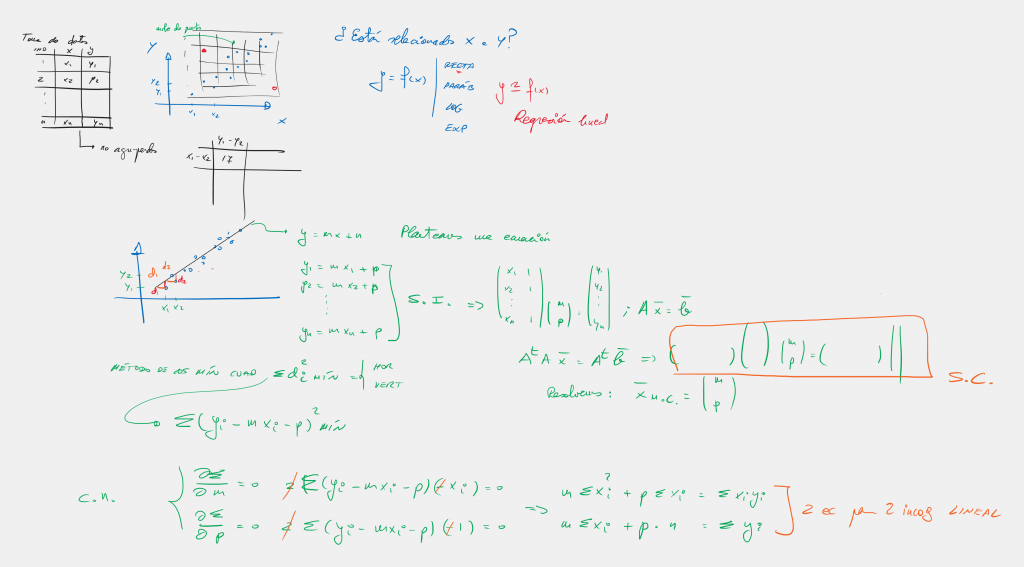 Toma de datos
IND x y
1 x₁ y₁
2 x₂ y₂
⋮
n xₙ yₙ
no agrupados
nube de puntos
Y
y₂
y₁
x₁ x₂
x
y₁ - y₂
x₁ - x₂ 17
¿Están relacionados x e y?
y = f(x)
RECTA
PARÁB
LOG
EXP
y ≃ f(x)
Regresión lineal
y = mx + n Planteamos una ecuación
y₂
y₁
d₁ d₂
d₁ d₂
x₁ x₂
y₁ = m x₁ + p
y₂ = m x₂ + p
⋮
yₙ = m xₙ + p
S.I. => (x₁ 1 x₂ 1 ⋮ xₙ 1) (m p) = (y₁ y₂ ⋮ yₙ) ; A x̄ = b̄
Aᵗ A x̄ = Aᵗ b̄ => ( ) ( ) (m p) = ( ) ( )
S.C.
Resolvemos: x̄ M.C. = (m p)
MÉTODO DE LOS MÍN CUAD Σ dᵢ² MÍN = { HOR VERT
Σ (yᵢ - m xᵢ - p)² MÍN
C.N.
∂Σ/∂m = 0 2 Σ (yᵢ - m xᵢ - p)(-xᵢ) = 0
∂Σ/∂p = 0 2 Σ (yᵢ - m xᵢ - p)(-1) = 0
=>
m Σ xᵢ² + p Σ xᵢ = Σ xᵢ yᵢ
m Σ xᵢ + p · n = Σ yᵢ
2 ec para 2 incog LINEAL